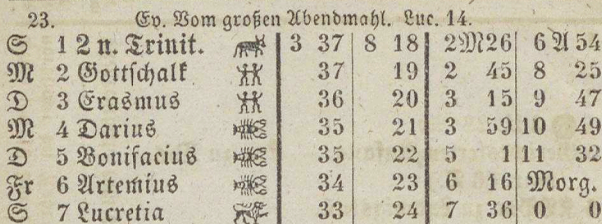 23. Ev. Vom großen Abendmahl. Luc. 14.
S 1 2 n. Trinit. 3 37 8 18 2M26 6A54
M 2 Gottschalk 37 19 2 45 8 25
D 3 Erasmus 36 20 3 15 9 47
M 4 Darius 35 21 3 59 10 49
D 5 Bonifacius 35 22 5 1 11 32
Fr 6 Artemius 34 23 6 16 Morg.
S 7 Lucretia 33 24 7 36 0 0